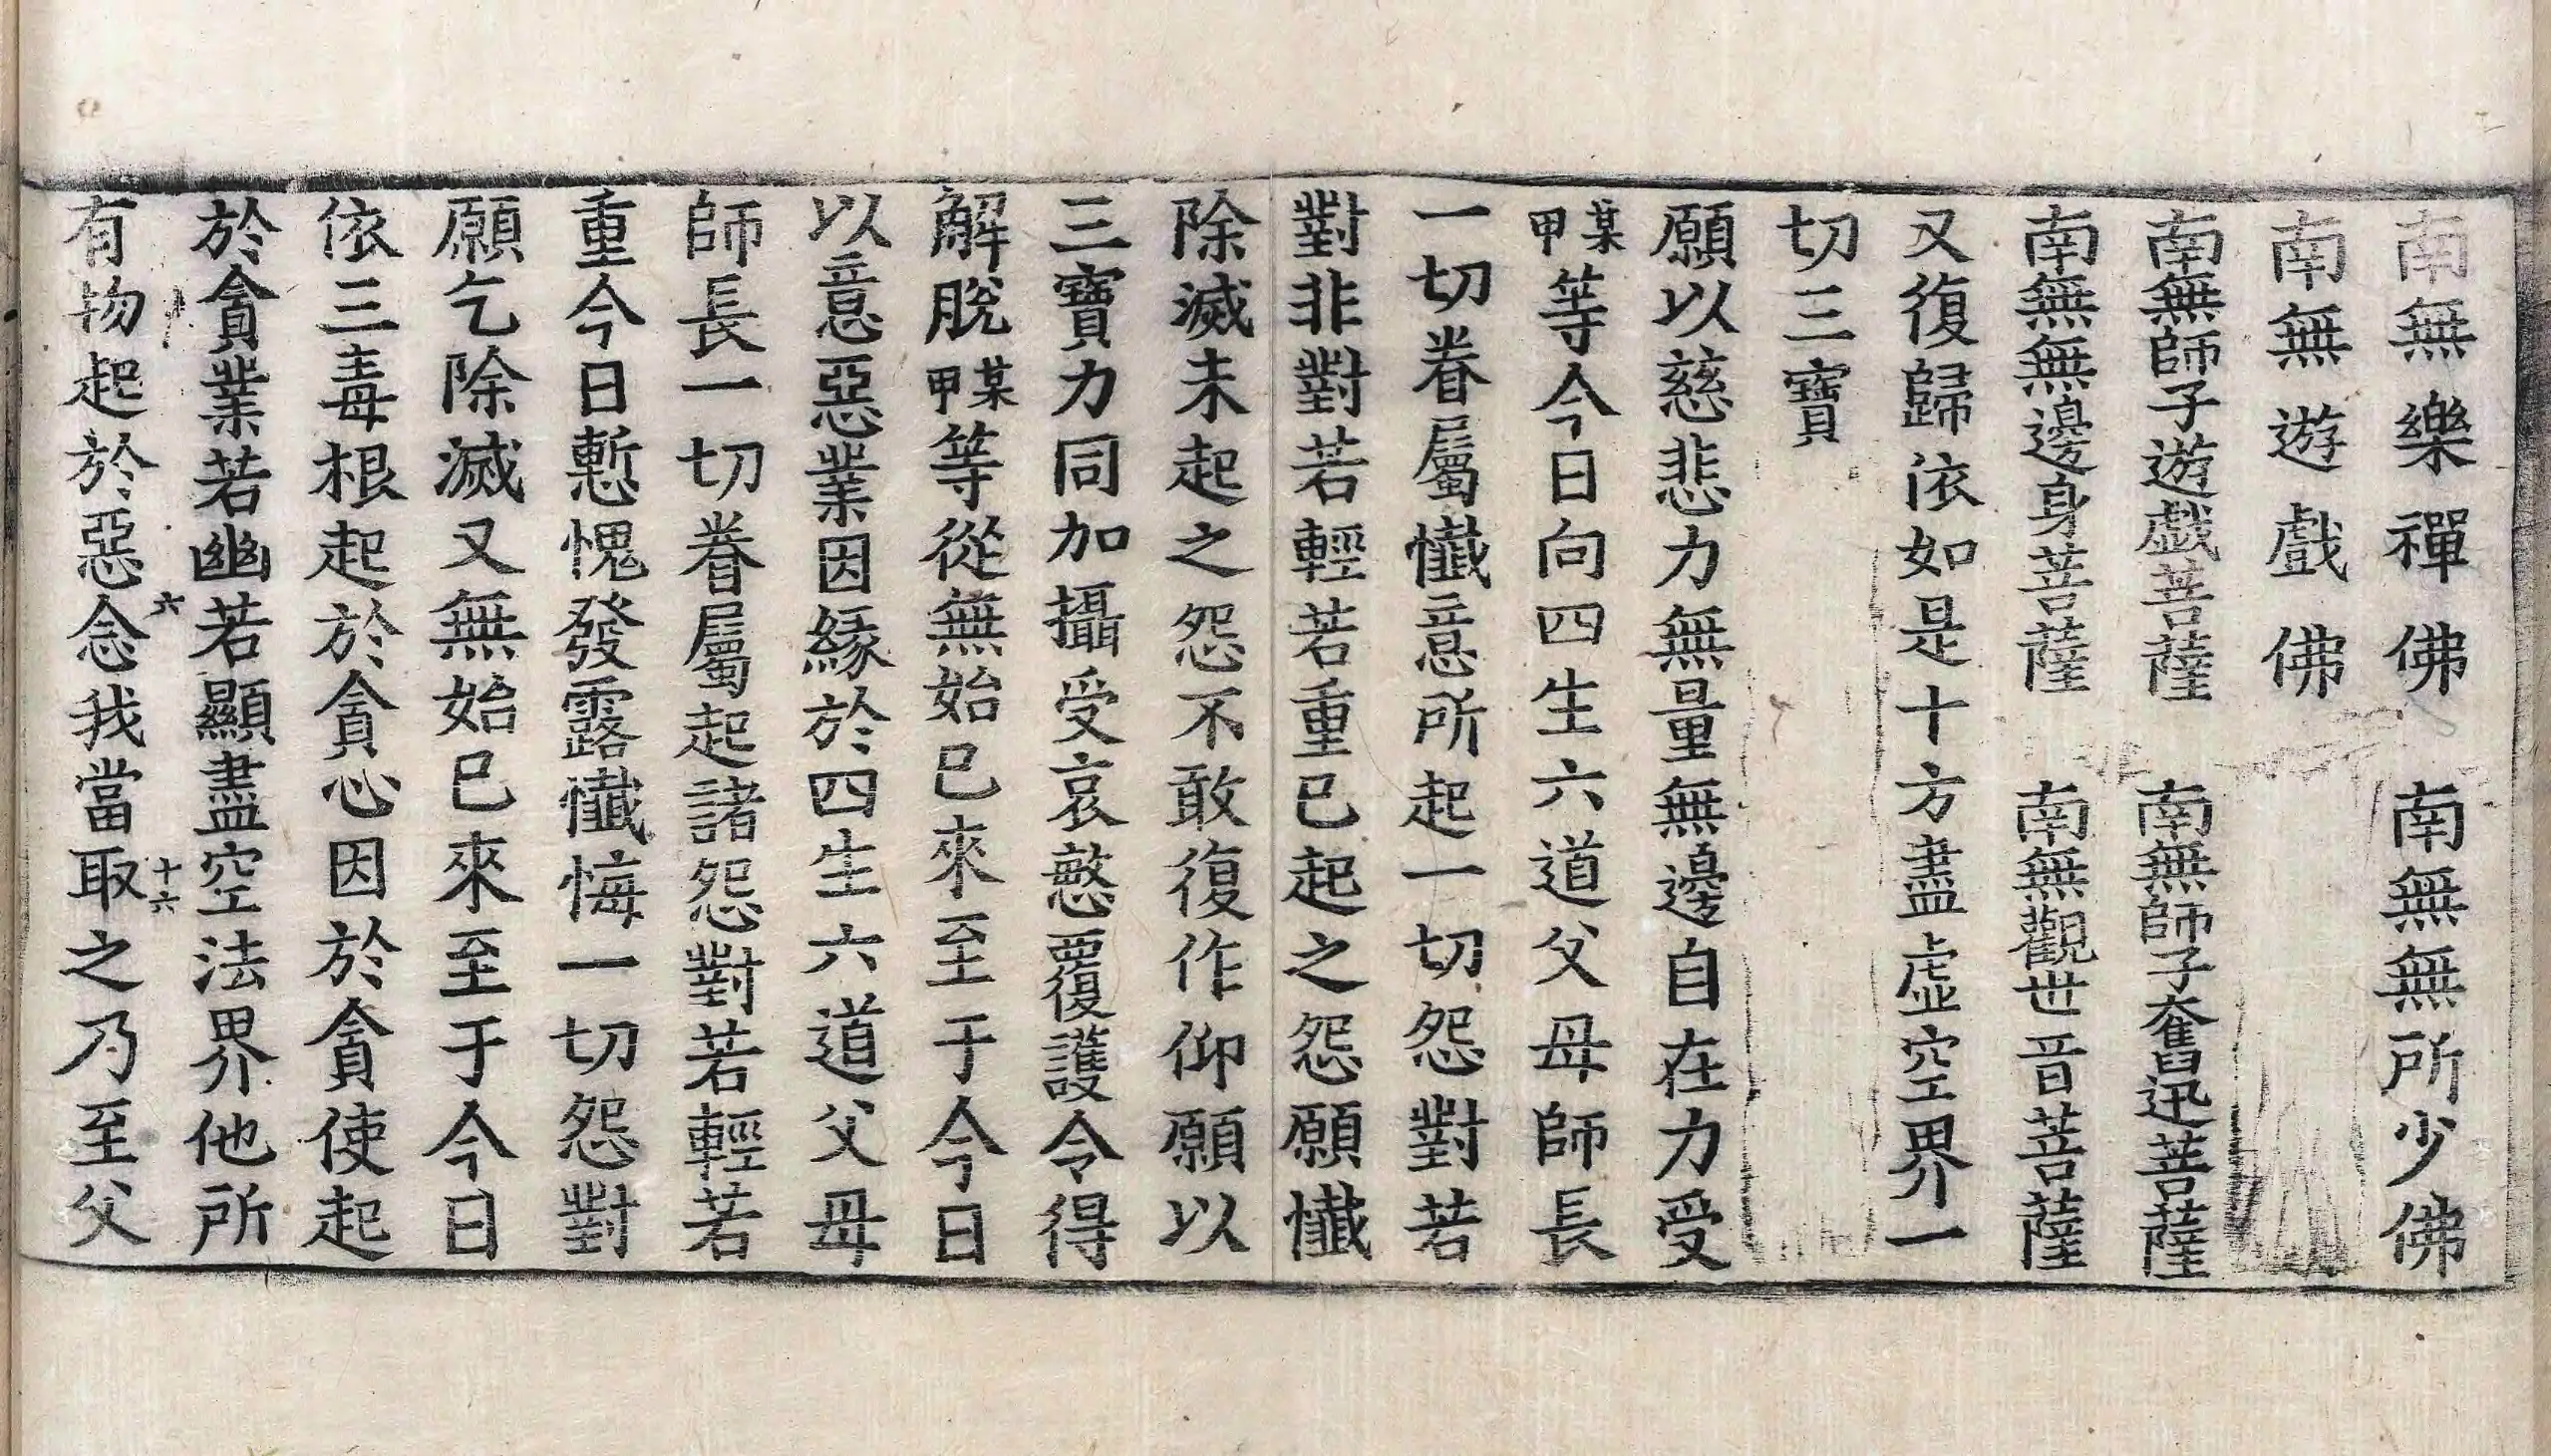 南無樂禪佛　南無無所少佛
南無遊戲佛
南無師子遊戯菩薩　南無師子奮迅菩薩
南無無邊身菩薩　南無觀世音菩薩
又復歸依如是十方盡虛空界一
切三寶
願以慈悲力無量無邊自在力受
某甲等今日向四生六道父母師長
一切眷屬懺意所起一切怨對若
對非對若輕若重已起之怨願懺
除滅未起之怨不敢復作仰願以
三寶力同加攝受哀愍覆護令得
解脫某甲等從無始已來至于今日
以意惡業因緣於四生六道父母
師長一切眷屬起諸怨對若輕若
重今日慙愧發露懺悔一切怨對
願乞除滅又無始已來至于今日
依三毒根起於貪心因於貪使起
於貪業若幽若顯盡空法界他所
六　十六
有物起於惡念我當取之乃至父